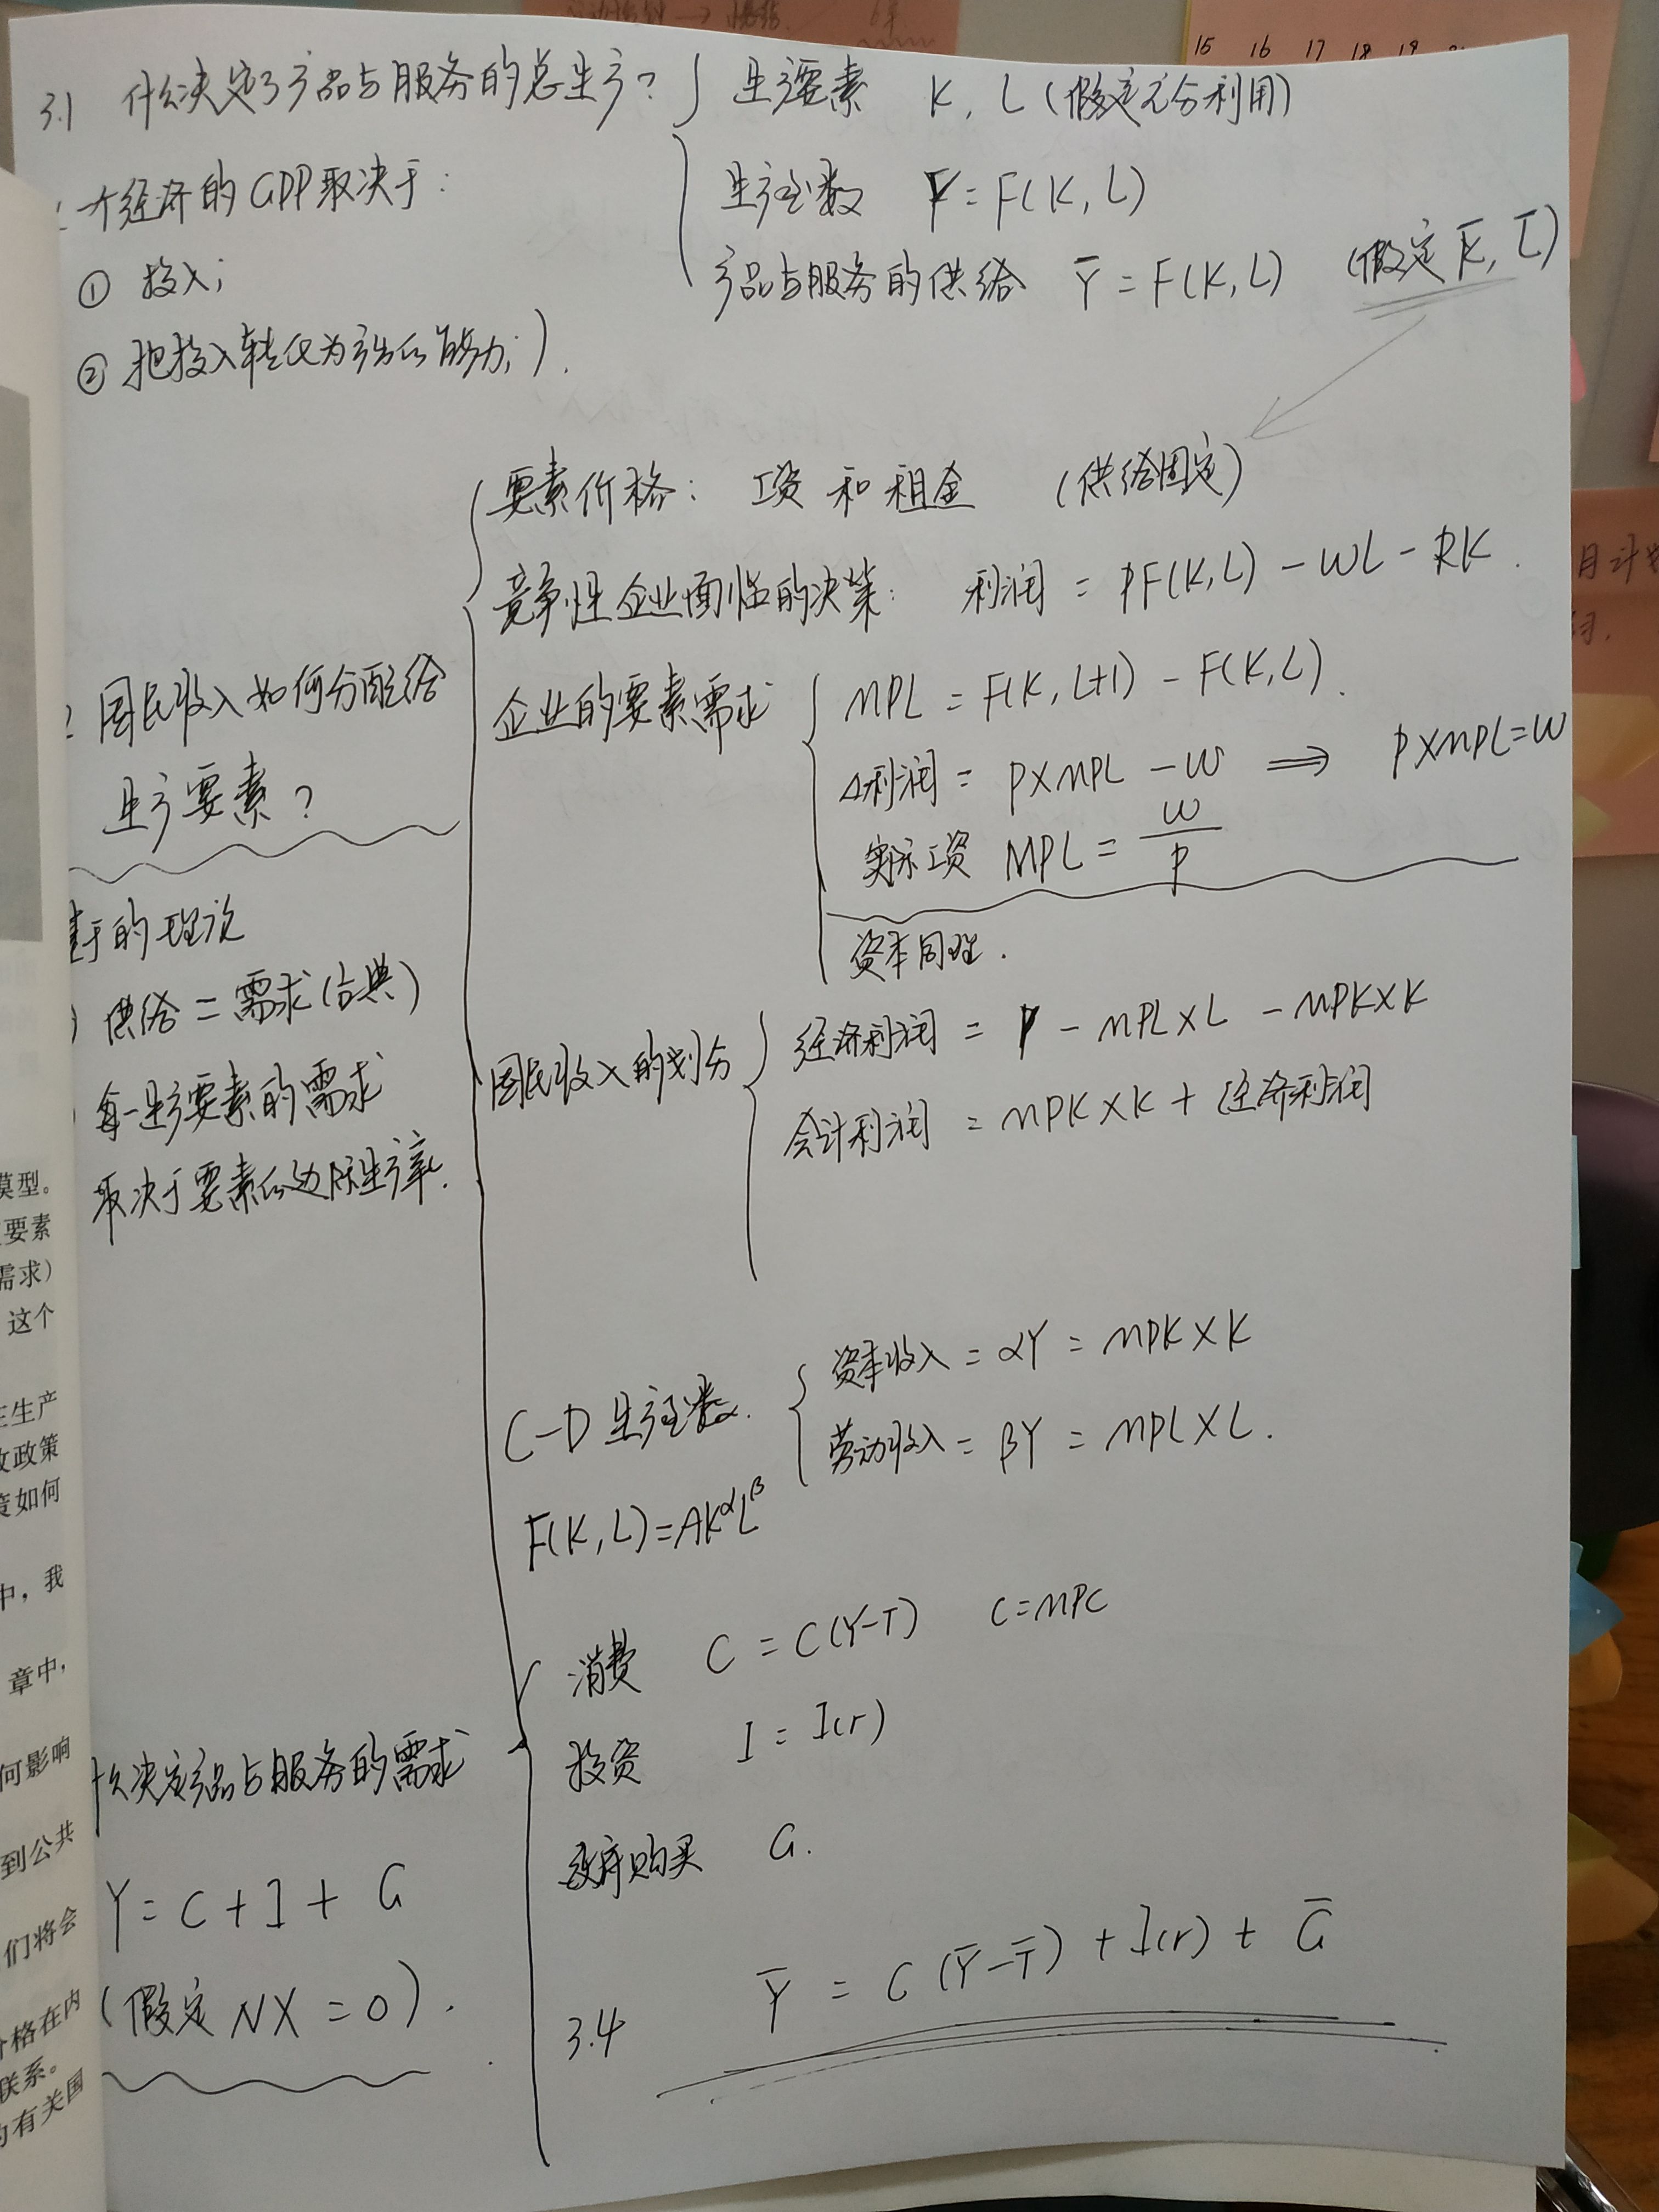 3.1 什么决定了产品与服务的总生产？ 生产要素 K, L (假定充分利用)
一个经济的GDP取决于：
生产函数 Y = F(K, L)
① 投入；
产品与服务的供给 Ȳ = F(K, L) (假定 K̄, L̄)
② 把投入转化为产出的能力；).
要素价格： 工资 和 租金 (供给固定)
竞争性企业面临的决策： 利润 = PF(K,L) - WL - RK .
企业的要素需求 MPL = F(K, L+1) - F(K, L).
△利润 = P×MPL - W ⟹ P×MPL=W
实际工资 MPL = W/P
资本同理.
国民收入如何分配给
生产要素？
基于的理论
供给 = 需求(古典)
每一生产要素的需求
取决于要素的边际生产率.
国民收入的划分 经济利润 = Y - MPL×L - MPK×K
会计利润 = MPK×K + 经济利润
C-D 生产函数. 资本收入 = αY = MPK×K
劳动收入 = βY = MPL×L.
F(K, L)=AK^αL^β
什么决定产品与服务的需求
Y = C + I + G
(假定 NX = 0).
消费 C = C(Y-T) C=MPC
投资 I = I(r)
政府购买 G.
3.4 Ȳ = C(Ȳ-T̄) + I(r) + Ḡ
模型。
要素
需求)
这个
生产
政政策
策如何
中，我
章中，
何影响
到公共
们将会
价格在内
联系。
有关国
15 16 17 18 19
月计划